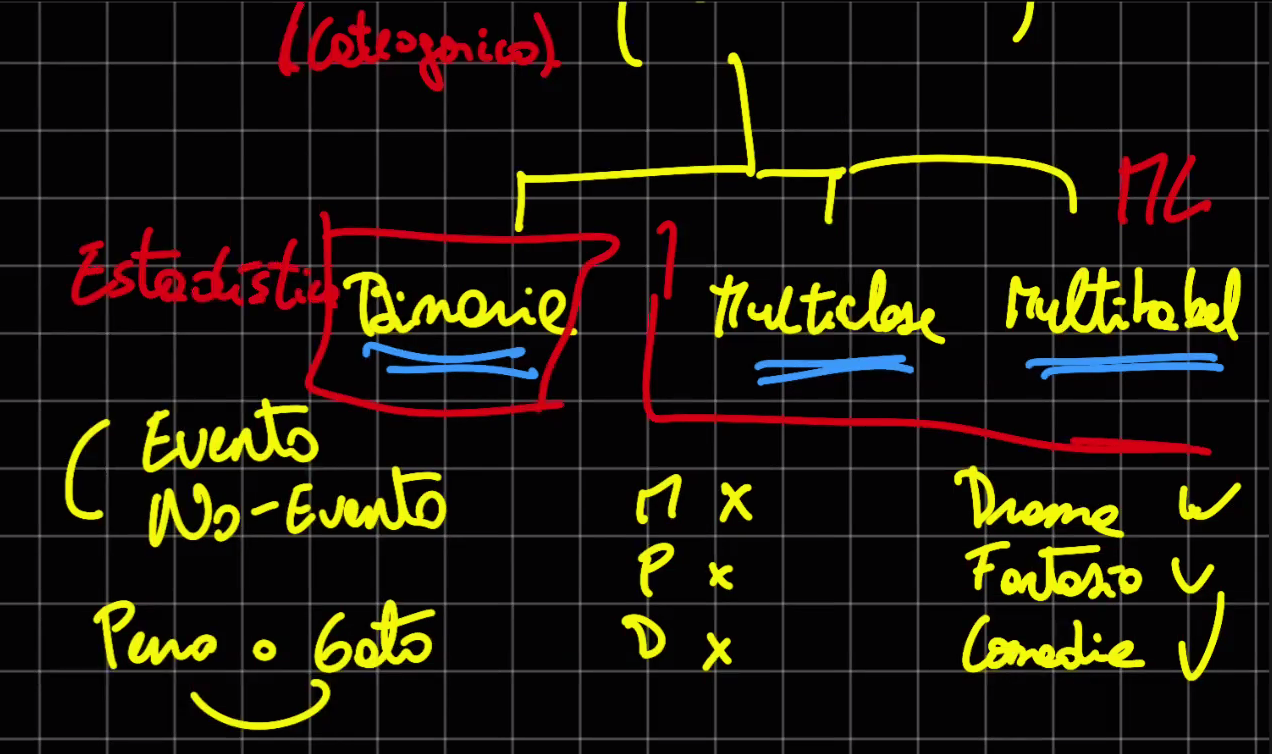 (Categorico)
ML
Estadística Binaria Multiclase Multilabel
Evento
No-Evento
M X
P X
D X
Drama
Fantasía
Comedia
Perro o Gato